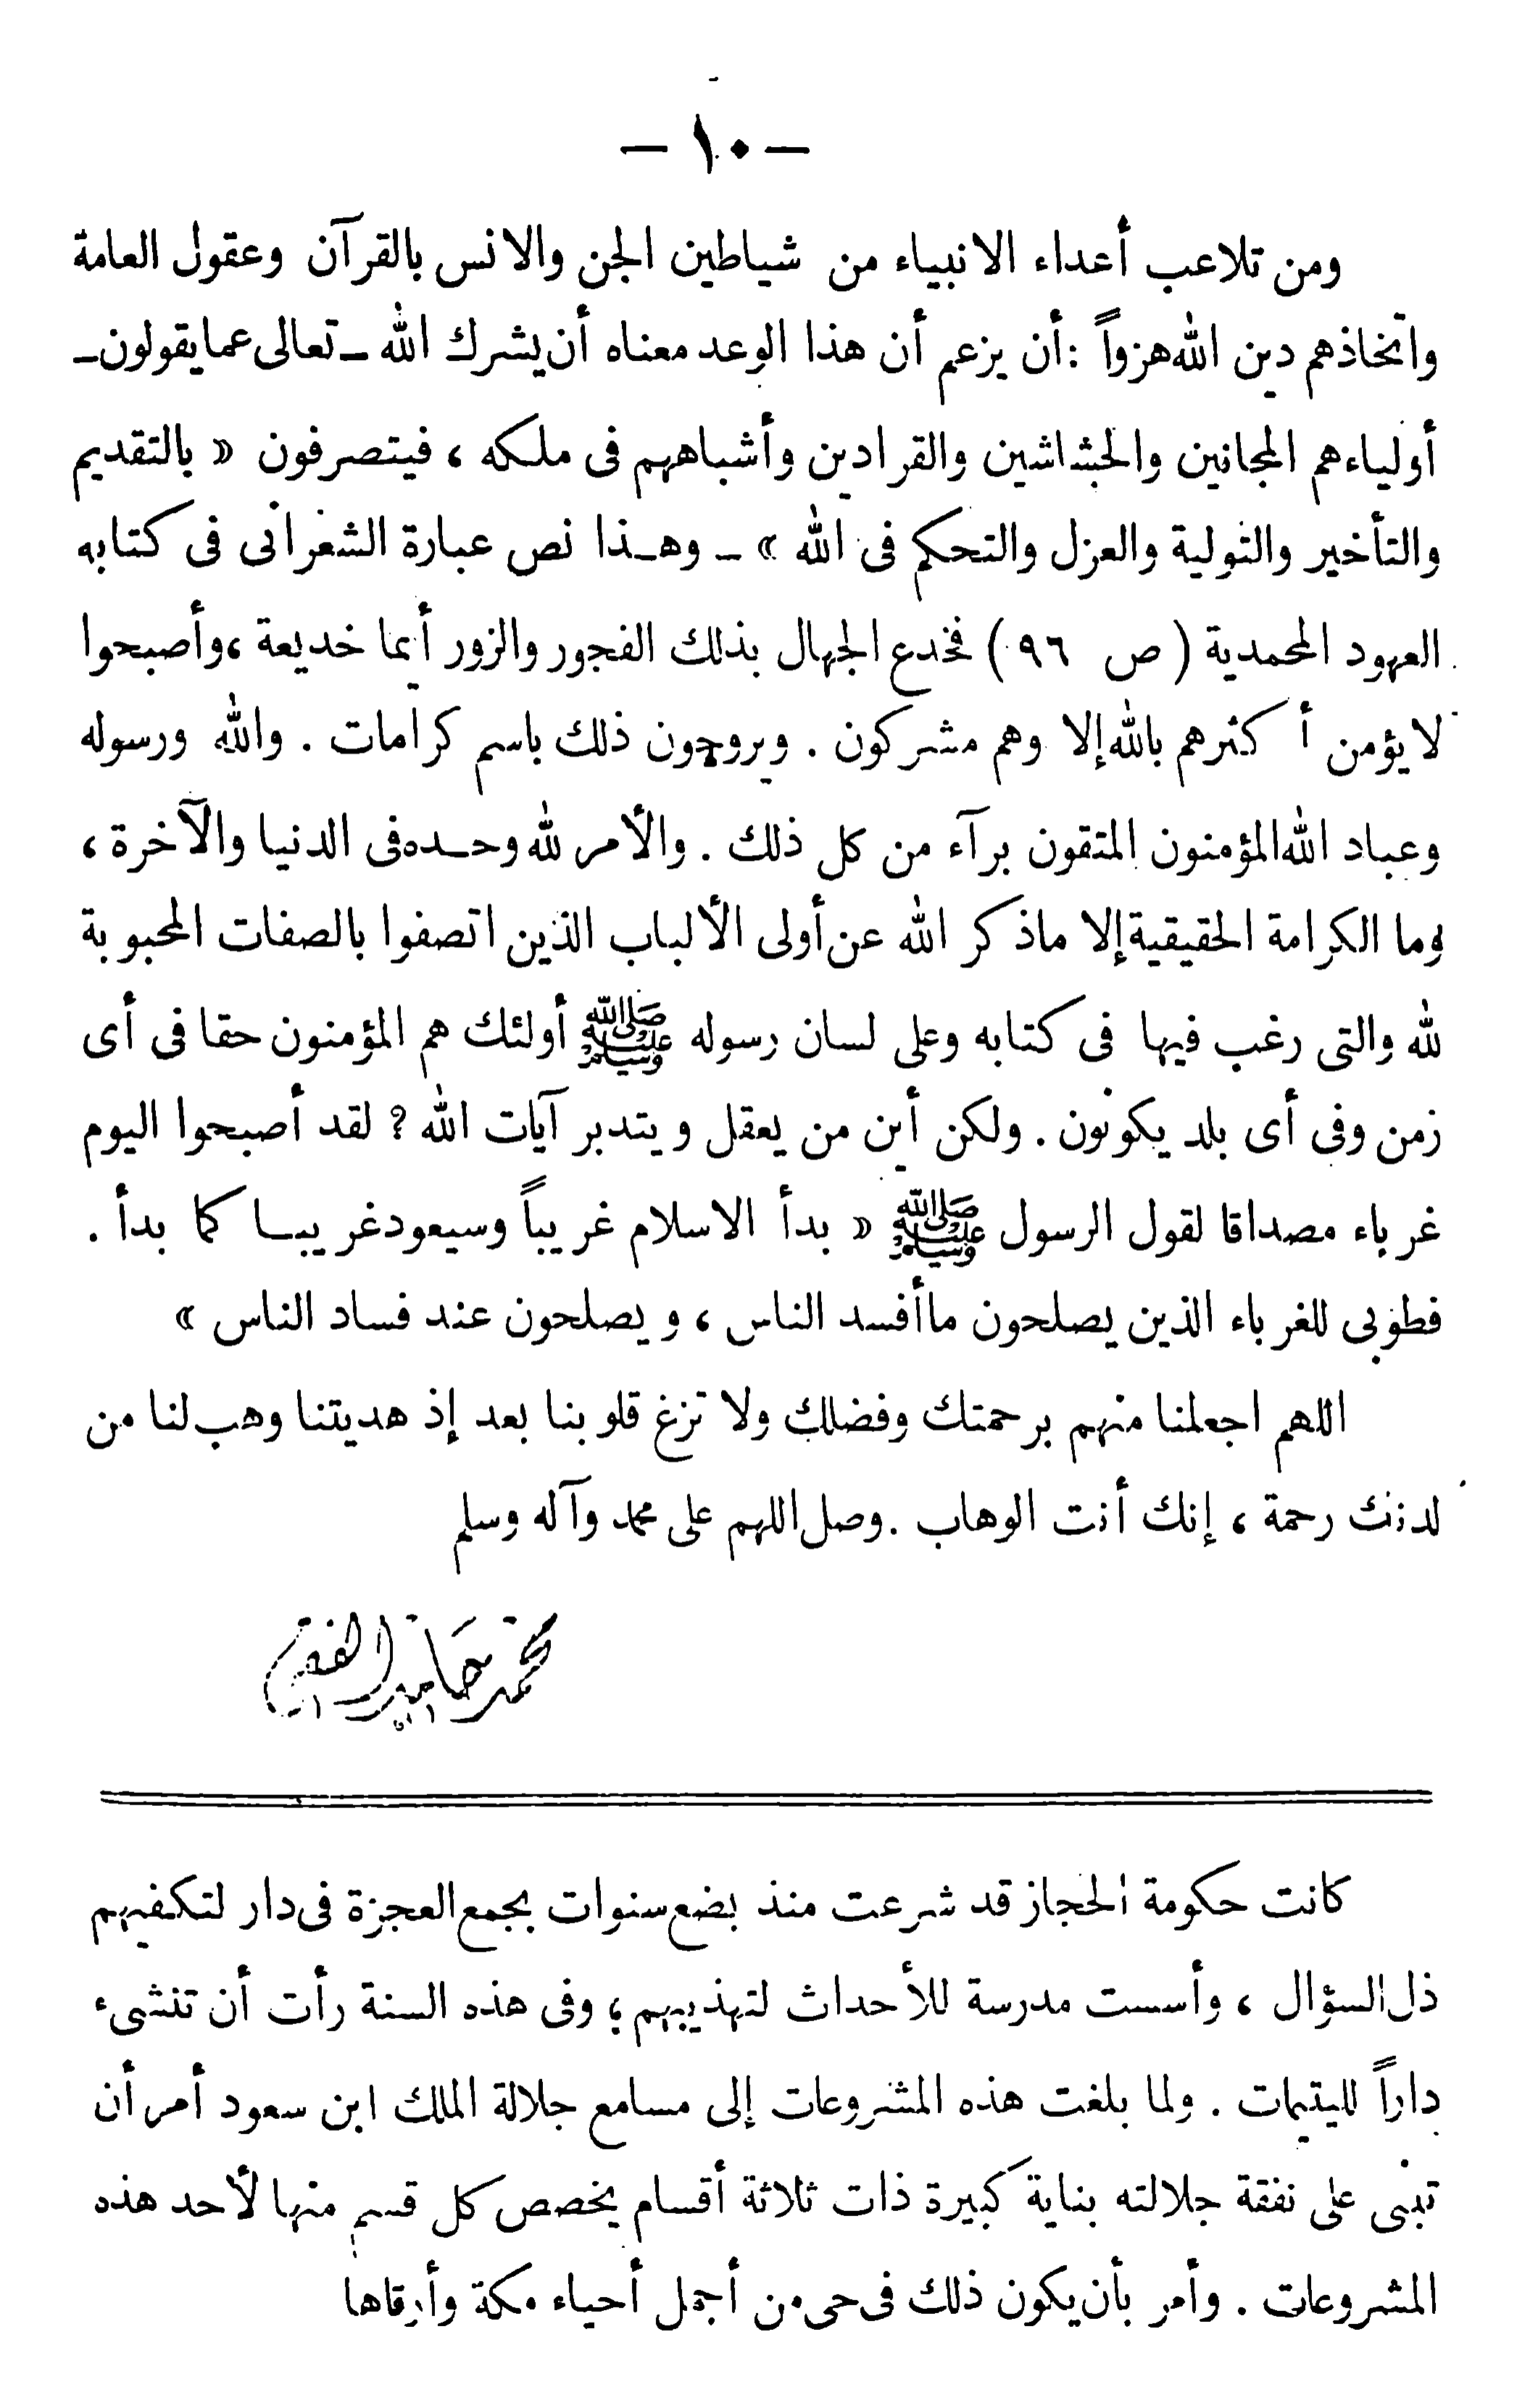 — ١٠ —
ومن تلاعب أعداء الانبياء من شياطين الجن والانس بالقرآن وعقول العامة
واتخاذهم دين الله هزواً : أن يزعم أن هذا الوعد معناه أن يشرك الله ـ تعالى عما يقولون ـ
أولياءهم المجانين والحشاشين والقرادين وأشباههم فى ملكه ، فيتصرفون « بالتقديم
والتأخير والتولية والعزل والتحكم فى الله » ـ وهـذا نص عبارة الشعرانى فى كتابه
العهود المحمدية ( ص ٩٦ ) فخدع الجهال بذلك الفجور والزور أيما خديعة ، وأصبحوا
لا يؤمن أكثرهم بالله إلا وهم مشركون . ويروجون ذلك باسم كرامات . والله ورسوله
وعباد الله المؤمنون المتقون برآء من كل ذلك . والأمر لله وحـده فى الدنيا والآخرة ،
وما الكرامة الحقيقية إلا ما ذكر الله عن أولى الألباب الذين اتصفوا بالصفات المحبوبة
لله والتى رغب فيها فى كتابه وعلى لسان رسوله ﷺ أولئك هم المؤمنون حقا فى أى
زمن وفى أى بلد يكونون . ولكن أين من يعقل ويتدبر آيات الله ؟ لقد أصبحوا اليوم
غرباء مصداقا لقول الرسول ﷺ « بدأ الاسلام غريباً وسيعود غريبـا كما بدأ .
فطوبى للغرباء الذين يصلحون ما أفسد الناس ، ويصلحون عند فساد الناس »
اللهم اجعلنا منهم برحمتك وفضلك ولا تزغ قلوبنا بعد إذ هديتنا وهب لنا من
لدنك رحمة ، إنك أنت الوهاب . وصل اللهم على محمد وآله وسلم
محمد حامد الفقى
كانت حكومة الحجاز قد شرعت منذ بضع سنوات بجمع العجزة فى دار لتكفيهم
ذل السؤال ، وأسست مدرسة للأحداث لتهذيبهم ؛ وفى هذه السنة رأت أن تنشىء
داراً لليتيمات . ولما بلغت هذه المشروعات إلى مسامع جلالة الملك ابن سعود أمر أن
تبنى على نفقة جلالته بناية كبيرة ذات ثلاثة أقسام يخصص كل قسم منها لأحد هذه
المشروعات . وأمر بأن يكون ذلك فى حى من أجمل أحياء مكة وأرقاها